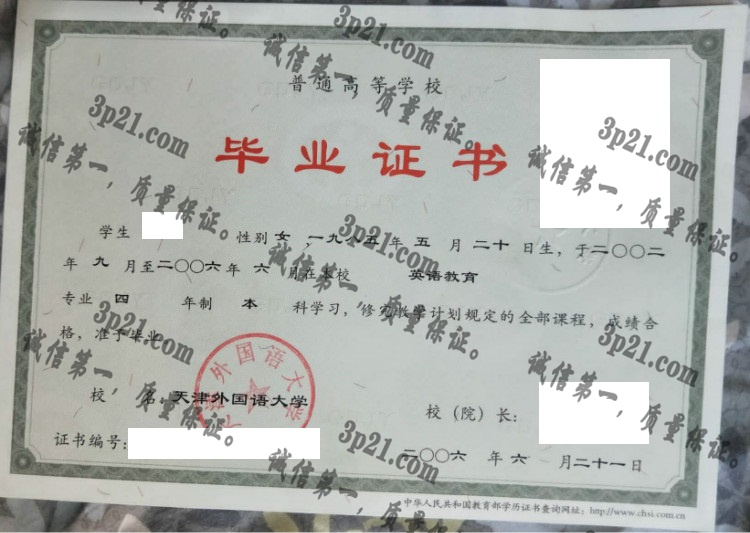 普通高等学校
毕业证书
学生 性别 女 , 一九八五 年 五 月 二十 日生，于二〇〇二
年 九 月至二〇〇六年 六 月在本校 英语教育
专业 四 年制 本 科学习，修完教学计划规定的全部课程，成绩合
格，准予毕业。
校 名：天津外国语大学
校（院）长：
证书编号：
二〇〇六 年 六 月二十一日
中华人民共和国教育部学历证书查询网址：http://www.chsi.com.cn
外国语大学
3p21.com
诚信第一，质量保证。
3p21.com
诚信第一，质量保证。
3p21.com
诚信第一，质量保证。
3p21.com
诚信第一，质量保证。
3p21.com
诚信第一，质量保证。
3p21.com
诚信第一，质量保证。
3p21.com
诚信第一，质量保证。